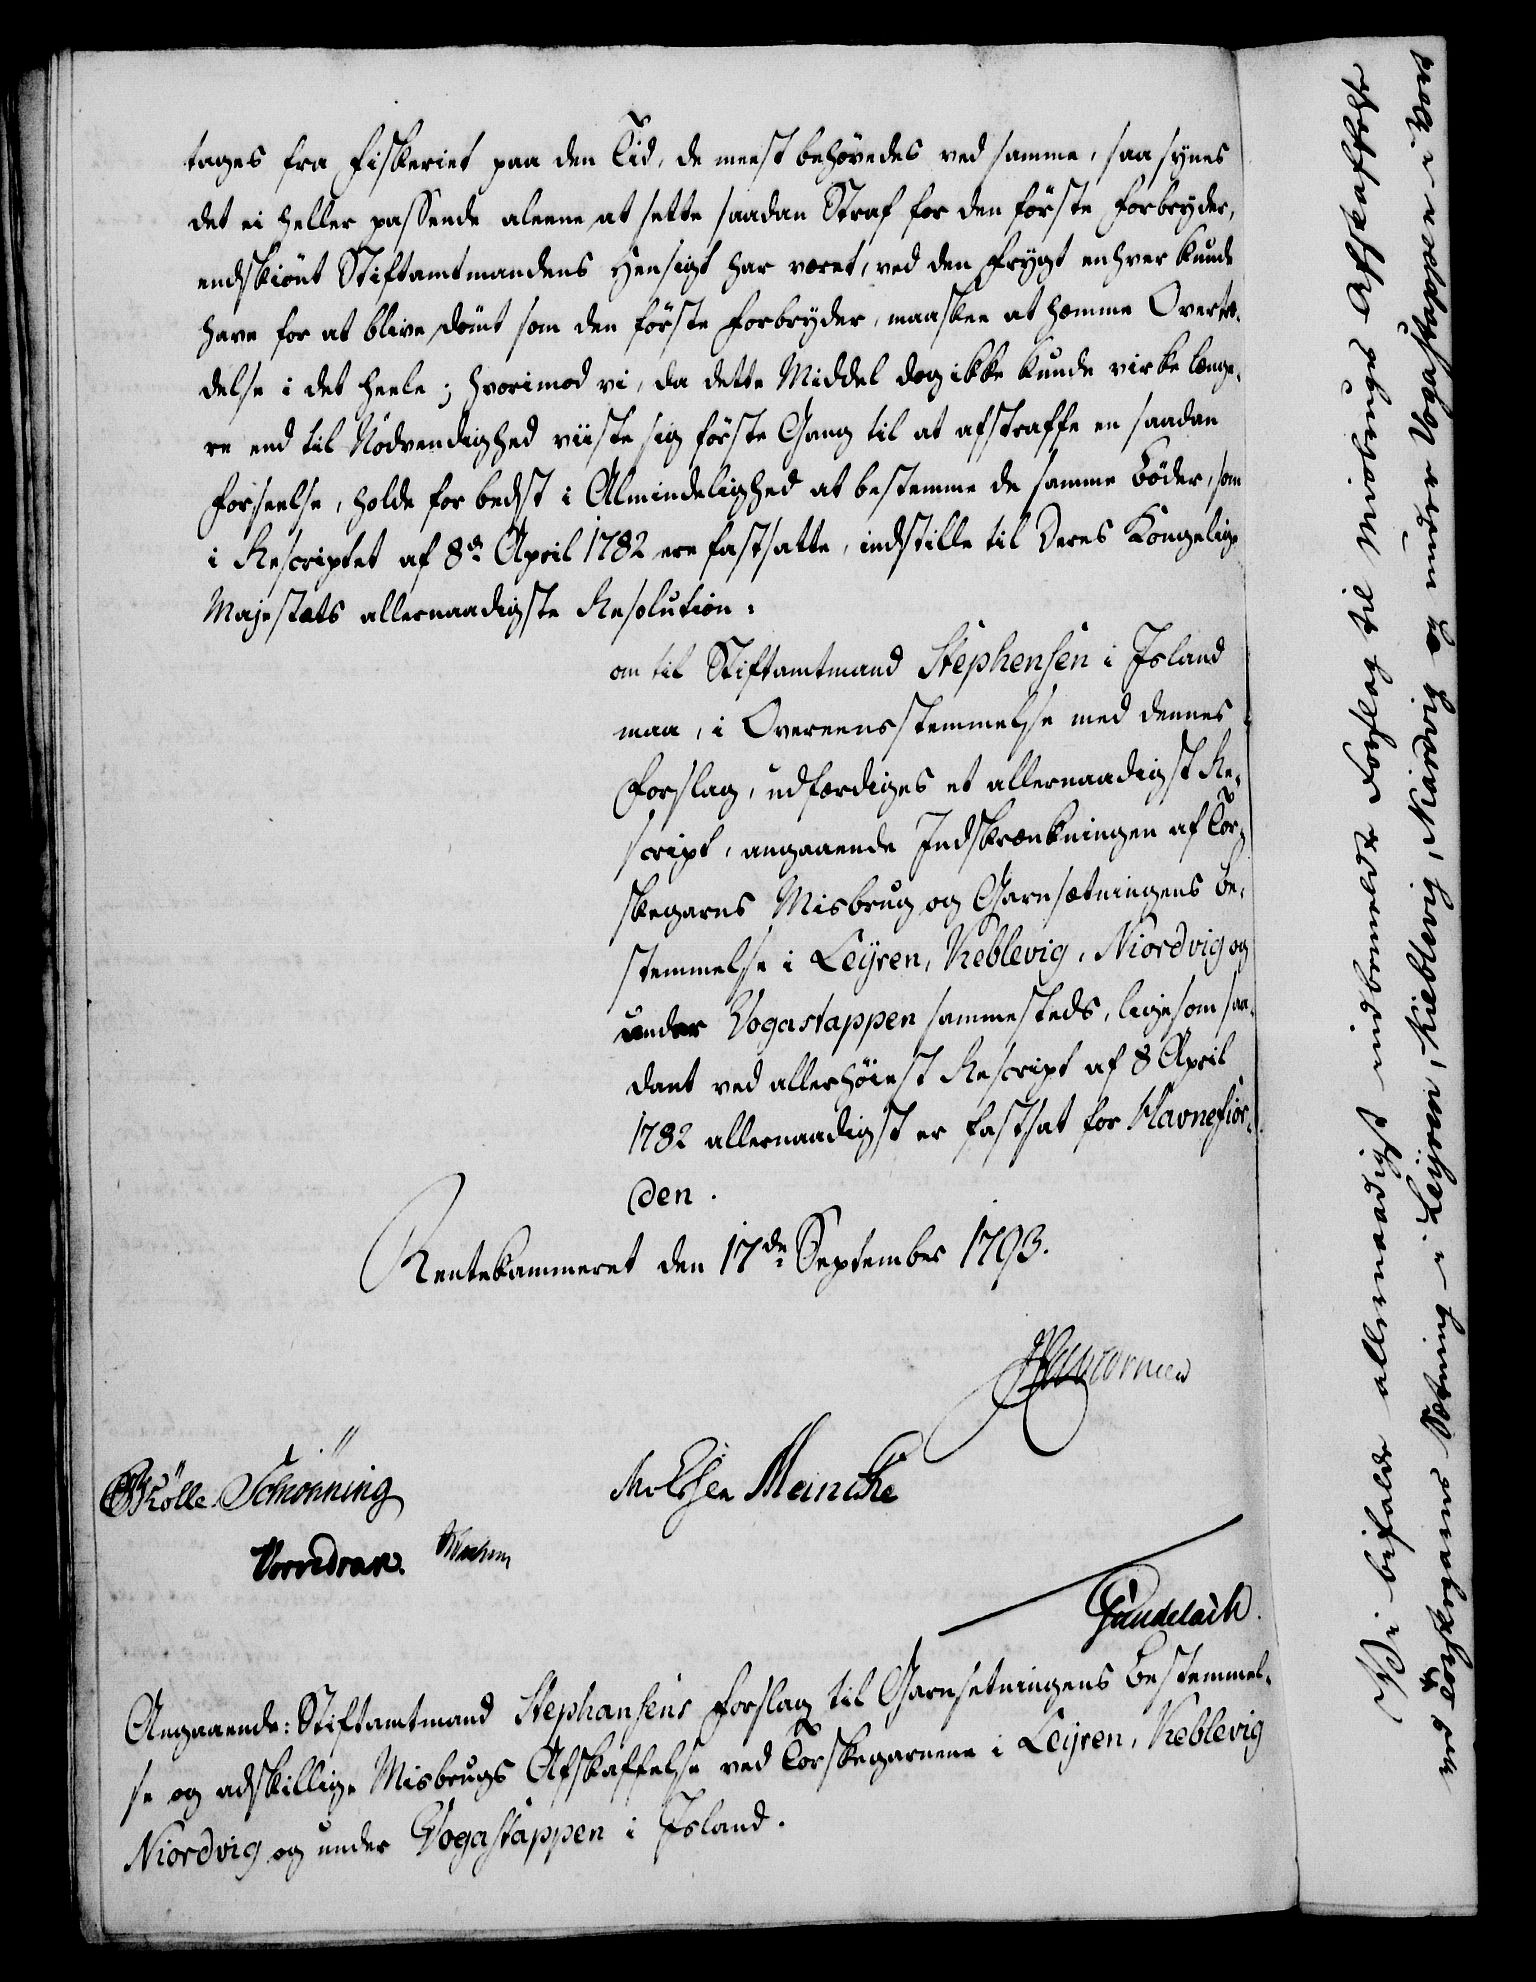 tages fra Fiskeriet paa den Tid, de meest behövedes ved samme, saa synes
det ei heller passende aleene at sette saadan Straf for den förste Forbryder,
endskiönt Stiftamtmandens Hensigt har været, ved den Frygt enhver kunde
have for at blive dömt som den förste Forbryder, maaskee at hemme Overtræ-
delse i det heele; hvorimod vi, da dette Middel dog ikke kunde virke længe-
re end til Nödvendighed viiste sig förste Gang til at afstraffe en saadan
Forseelse, holde for bedst i Almindelighed at bestemme de samme Böder, som
i Rescriptet af 8de April 1782 ere fastsatte, indstille til Deres Kongelige
Majestæts allernaadigste Resolution:
om til Stiftamtmand Stephensen i Island
maa, i Overeensstemmelse med dennes
Forslag, udfærdiges et allernaadigst Re-
script, angaaende Indskrænkningen af Tor-
skegarns Misbrug og Garnsætningens Be-
stemmelse i Leyren, Keblevig, Niordvig og
under Vogastappen sammesteds, ligesom saa-
dant ved allerhöiest Rescript af 8 April
1782 allernaadigst er fastsat for Havnefior-
den.
Rentekammeret den 17de September 1793.
Schönning
Meincke
Wormdran.
Gundelach.
Angaaende: Stiftamtmand Stephansens Forslag til Garnsetningens Bestemmel-
se og adskillige Misbrugs Afskaffelse ved Torskegarnene i Leyren, Keblevig
Niordvig og under Vogastappen i Island.
Vi bifalde allernaadigst indbemeldte Forslag til Misbruges Afskaffelse
ved Torskegarns Sætning i Leyren, Kieblevig, Niordvig og under Vogastappen i Vort